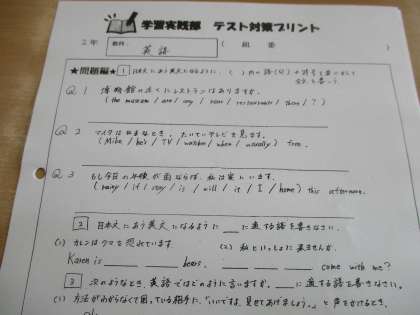 学習実践部 テスト対策プリント
2年 教科 英語 ( 組 番 )
★問題編★ 1 日本文にあう英文になるように、( )内の語(句)や符号を並べかえて
全文を書こう。
Q1 博物館の近くにレストランはありますか。
(the museum / are / any / near / restaurants / there / ? )
Q2 マイクはひまなとき、たいていテレビを見ます。
(Mike / he's / TV / watches / when / usually) free.
Q3 もし今日の午後が雨ならば、私は家にいます。
(rainy / if / stay / is / will / it / I / home) this afternoon.
2 日本文にあう英文になるように に適する語を書きなさい。
(1) カレンはクマを恐れています。 (2) 私といっしょに来ませんか。
Karen is bears. come with me?
3 次のようなとき、英語ではどのように言いますか。 に適する語を書きなさい。
(1) 方法がわからなくて困っている相手に、「いいですよ、見せてあげましょう。」と声をかけるとき。